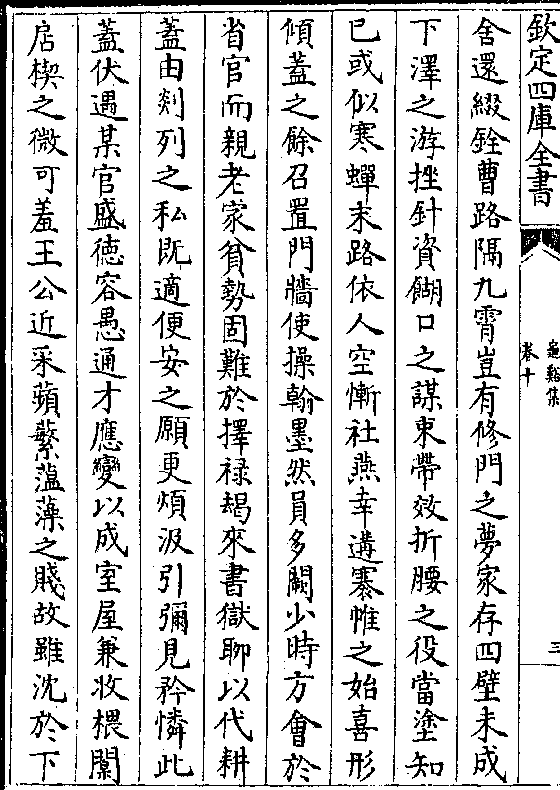 欽定四庫全書
龜谿集
卷十
三
舍還綴銓曹路隔九霄豈有修門之夢家存四壁未成
下澤之游挫針資餬口之謀束帶效折腰之役當塗知
已或似寒蟬末路依人空慚社燕幸遘褰帷之始喜形
傾蓋之餘召置門牆使操翰墨然員多闕少時方會於
省官而親老家貧勢固難於擇祿朅來書獄聊以代耕
蓋由剡列之私既適便安之願更煩汲引彌見矜憐此
蓋伏遇某官盛德容愚通才應變以成室屋兼收椳闑
扂楔之微可羞王公近采蘋蘩蕰藻之賤故雖沈於下